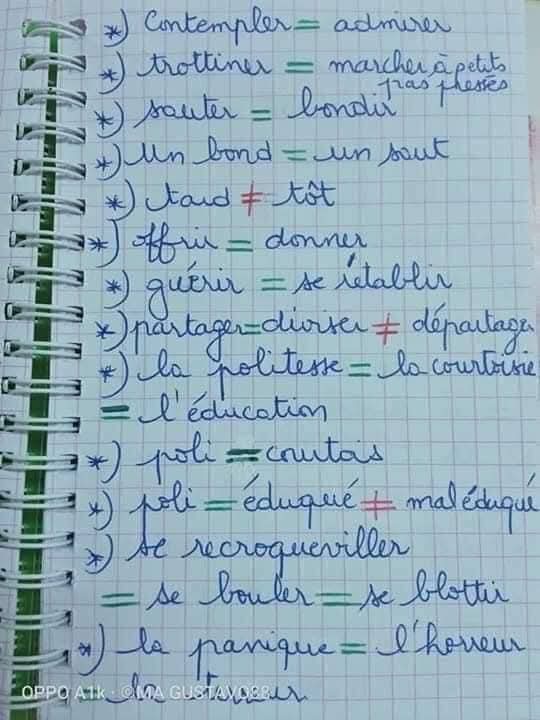 *) Contempler = admirer
*) trottiner = marcher à petits
pas pressés
*) sauter = bondir
*) Un bond = un saut
*) tard ≠ tôt
*) offrir = donner
*) guérir = se rétablir
*) partager = diviser ≠ départager
*) la politesse = la courtoisie
= l'éducation
*) poli = courtois
*) poli = éduqué ≠ mal éduqué
*) se recroqueviller
= se bouler = se blottir
*) la panique = l'horreur
= la
OPPO A1k · ©MA GUSTAVO88